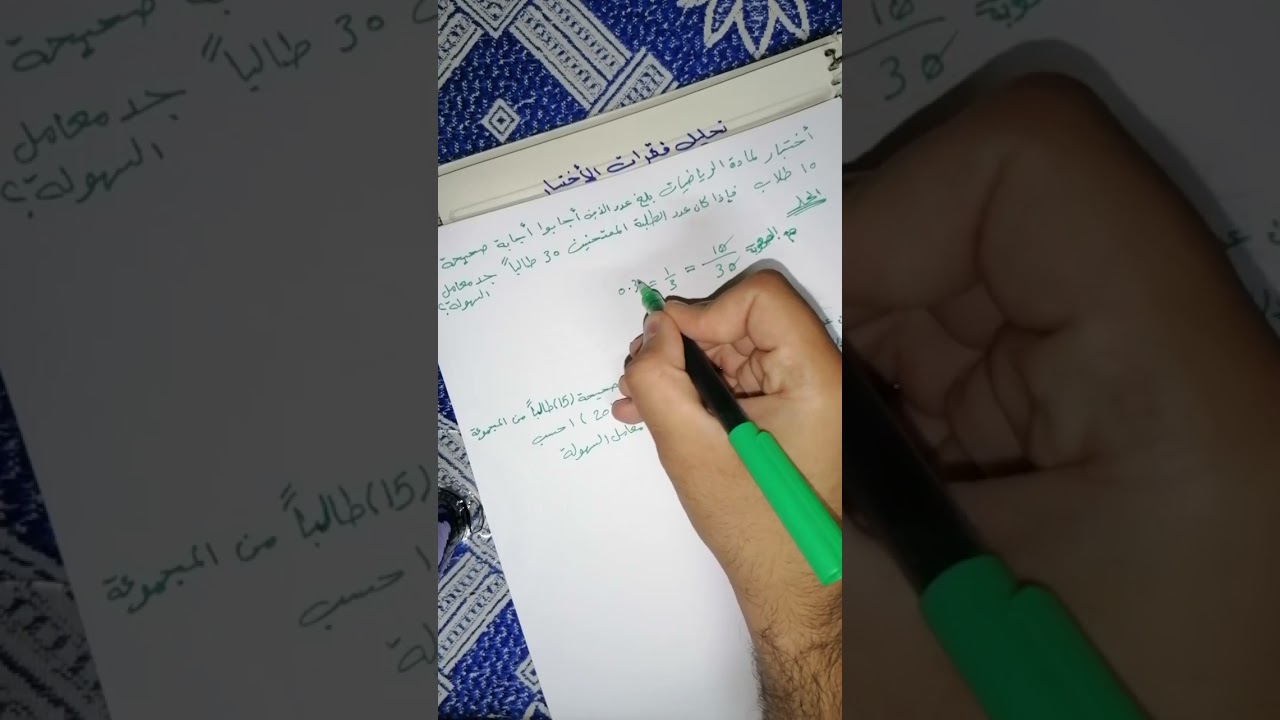 تحليل فقرات الأختبار
أختبار لمادة الرياضيات بلغ عدد الذين أجابوا أجابة صحيحة
١٠ طلاب فإذا كان عدد الطلبة الممتحنين 30 طالباً جد معامل
السهولة؟
الحل
م الصعوبة = 10/30 = 1/3 = 0.3
صحيحة (15) طالباً من المجموعة
(20) احسب
معامل السهولة